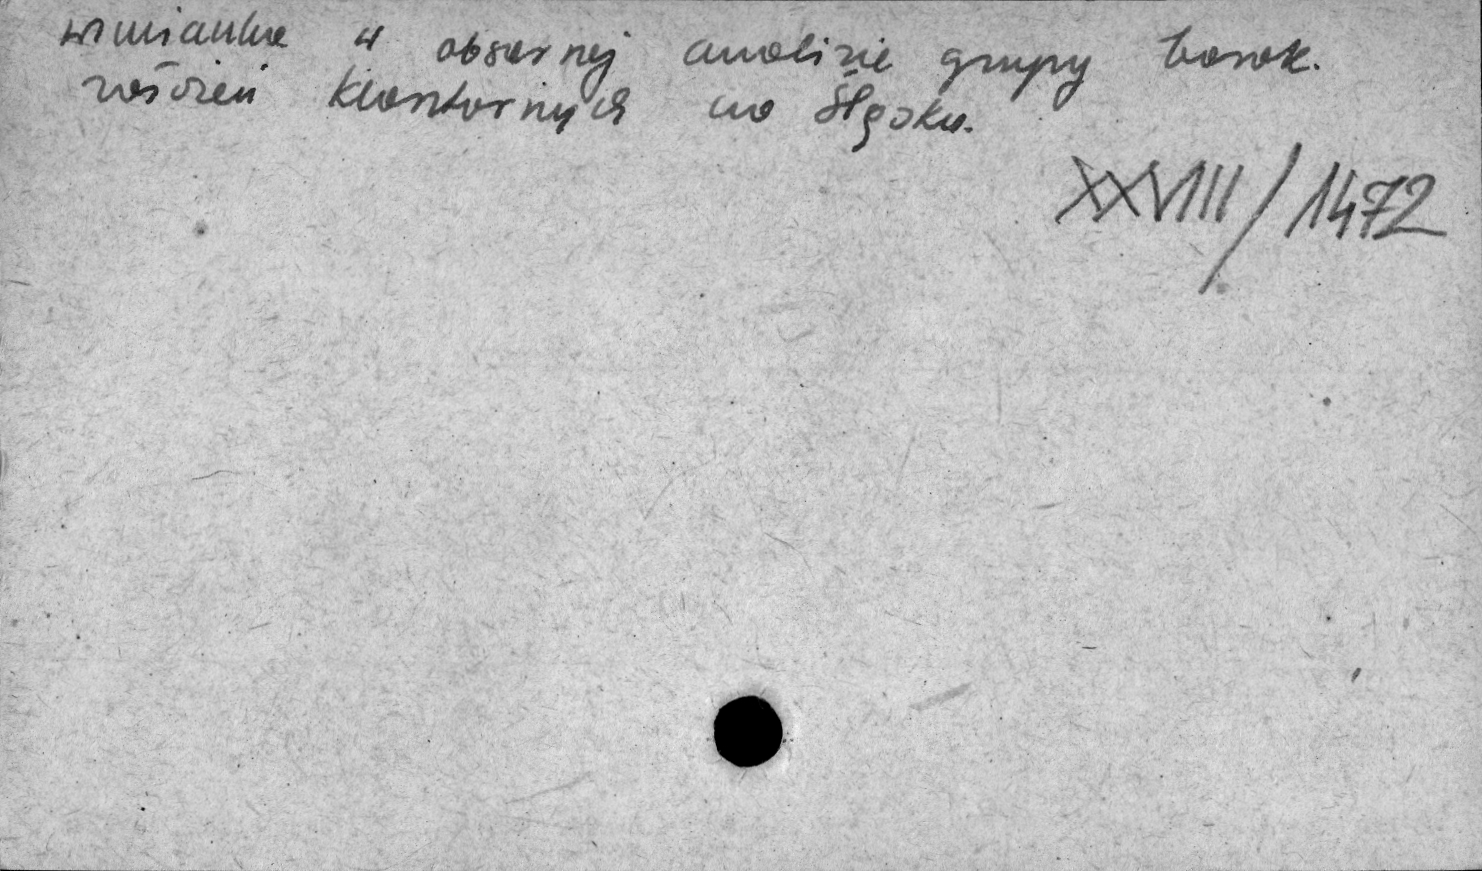 wzmianka w obszernej analizie grupy barok.
wież klasztornych na Śląsku.
XXVIII/1472